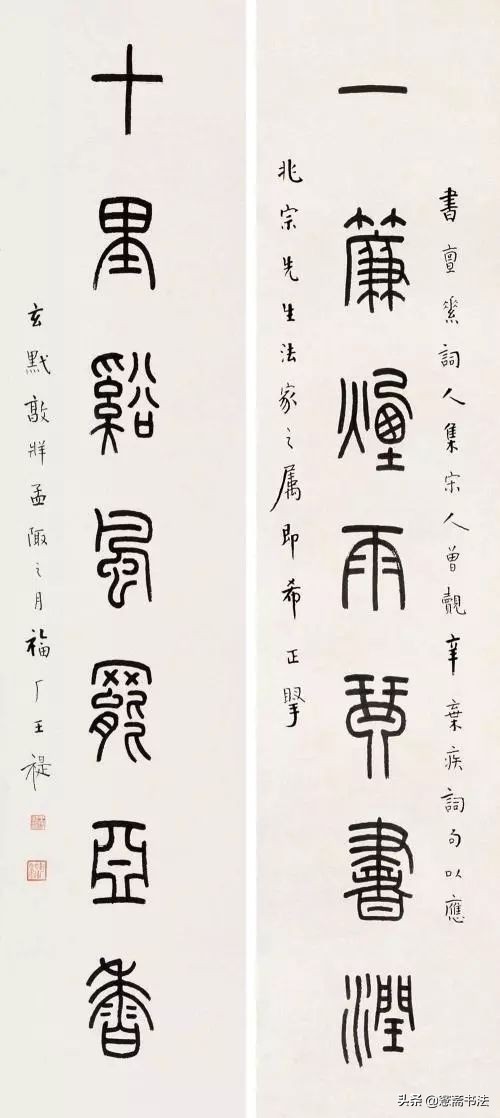 書亶素詞人集宋人曾覿辛棄疾詞句以應
一簾煙雨琴書潤
兆宗先生法家之属即希正掔
十里谿風罷亞香
玄黓敦牂孟陬之月福厂王禔
头条 @斋书法